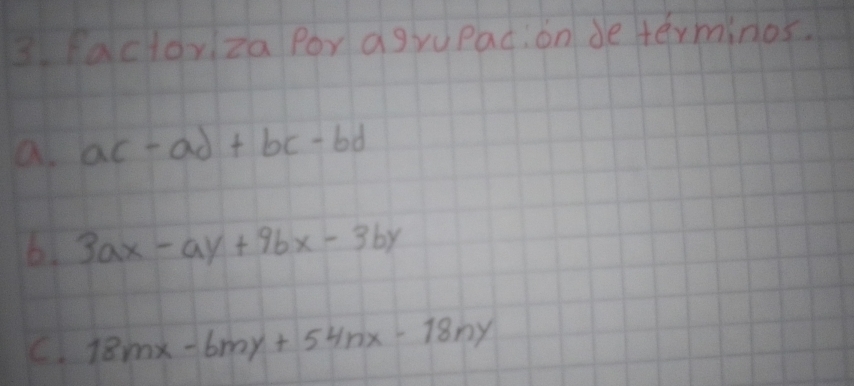 3. Factoriza Por agrupación de términos.
a. ac - ad + bc - bd
b. 3ax - ay + 9bx - 3by
c. 18mx - 6my + 54nx - 18ny